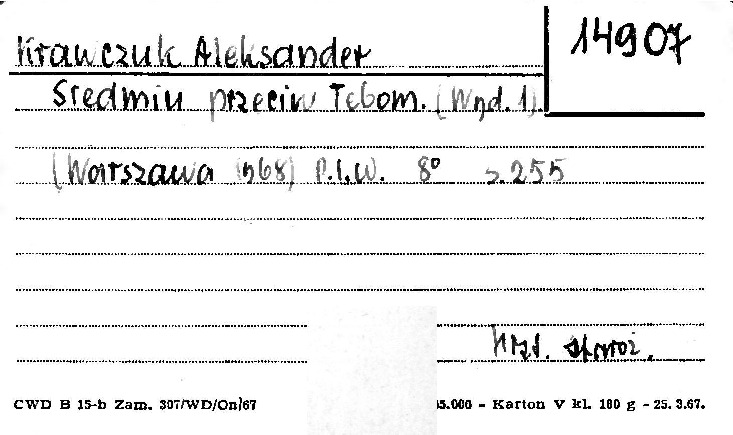 14907
Krawczuk Aleksander
Siedmiu przeciw Tebom. (Wyd. 1)
(Warszawa 1968) P.I.W. 8° s. 255
Hist. staroż.
CWD B 15-b Zam. 307/WD/On/67 5.000 - Karton V kl. 180 g - 25. 3.67.